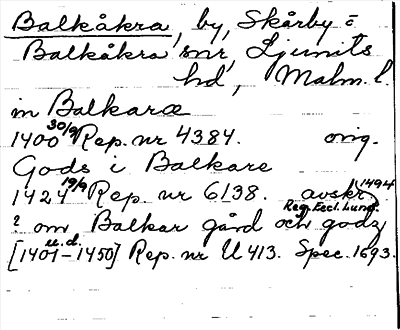 Balkåkra, by, Skårby =
Balkåkra snr, Ljunits
hd, Malm. l.
in Balkaræ
1400 30/9 Rep. nr 4384. orig.
Gods i Balkare
1424 19/9 Rep. nr 6138. avskr. 1494
Reg. Eccl. Lund.
? om Balkar gård och godz
[1401 u.d. - 1450] Rep. nr U 413. Spec. 1693.